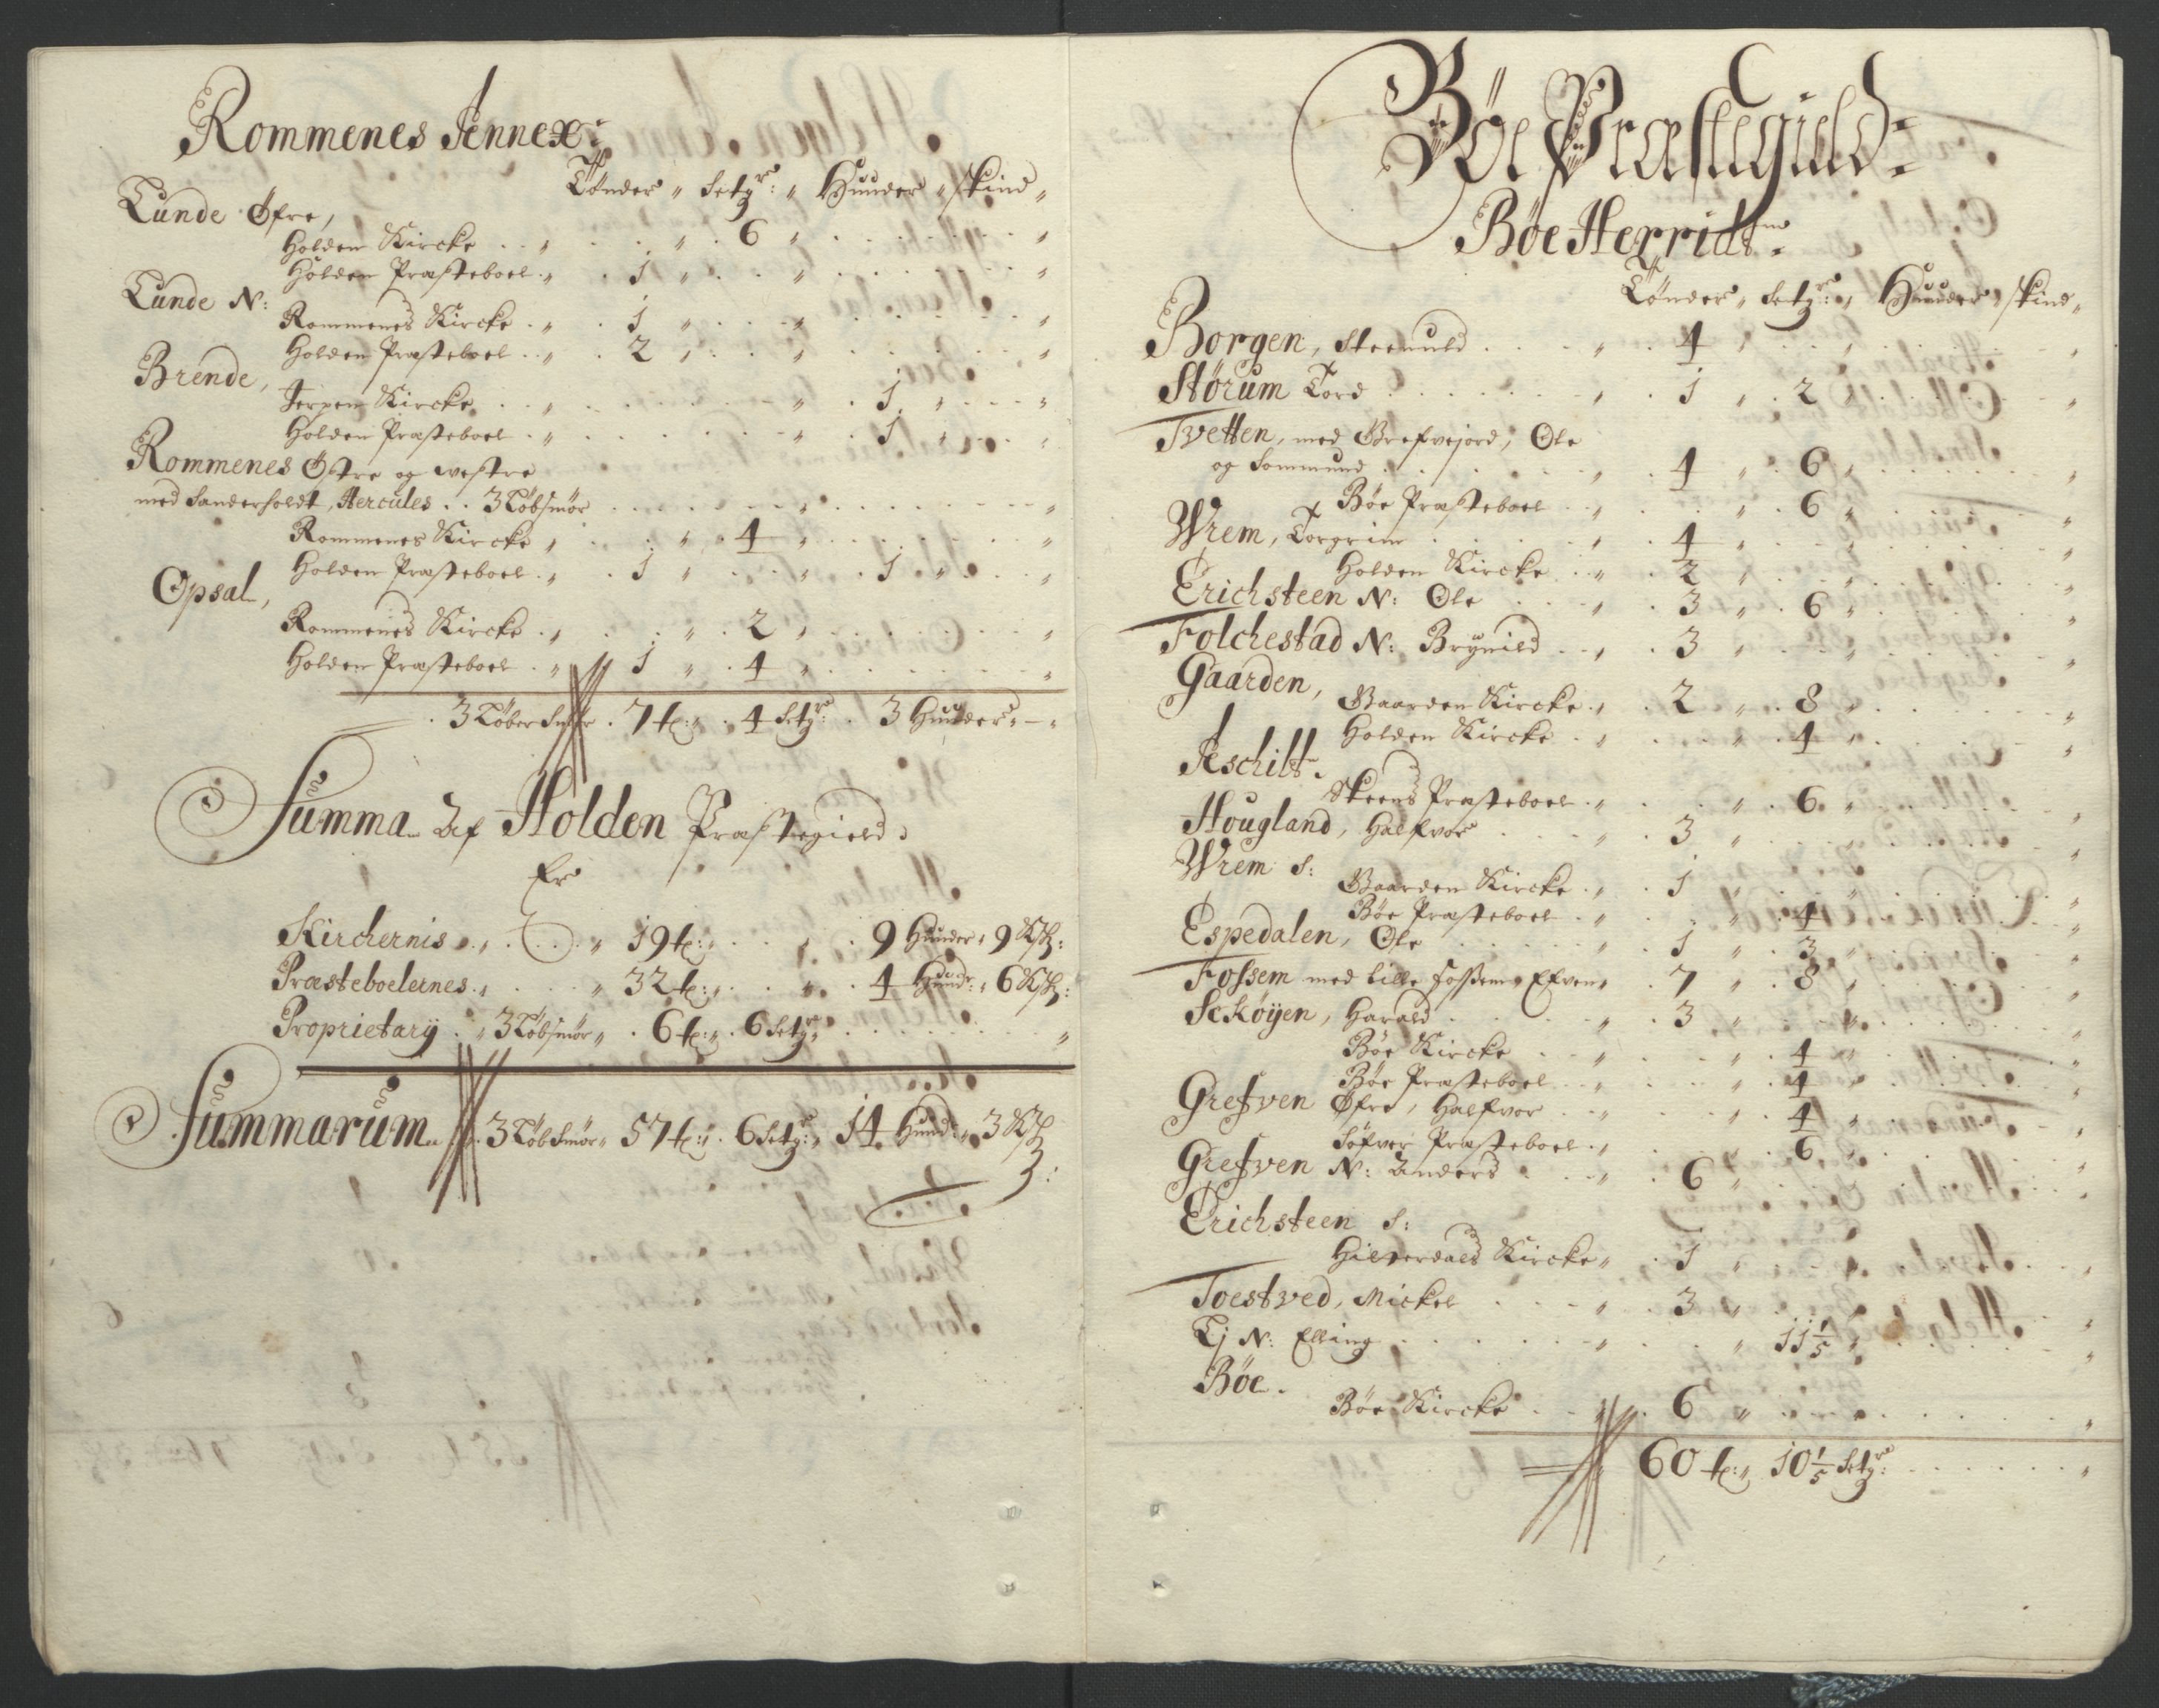 Rommenes Annex:
Tønder „ Setgr: „ Huuder „ Skind „
Lunde Øfre,
Holden Kircke . . „ . . . „ . 6 „ . . . . „
Holden Præsteboel . „ . 1 „ . . „ . . . . „
Lunde N:
Rommenes Kircke . „ . 1 „ . . „ . . . . „
Holden Præsteboel . „ . 2 „ . . „ . . . . „
Brende,
Jerpen Kircke . . „ . . . . . „ . 1 „ . . „
Holden Præsteboel . „ . . . . . „ . 1 „ . . „
Rommenes Østre og westre
med Sanderholdt, Hercules . . 3 Løbsmør . . . . „ . . . . „
Rommenes Kircke „ . . . „ . 4 „ . . . . „
Holden Præsteboel . „ . 1 „ . . „ . 1 „ . . „
Opsal,
Rommenes Kircke . „ . . . „ . 2 „ . . . . „
Holden Præsteboel . „ . 1 „ . 4 „ . . . . „
. 3 Løber Smør . 7 t: „ . 4 Setgr: . 3 Huuder „ — „
Summa Af Holden Præstegield
Er
Kirchernis . „ . . . „ 19 t: „ . . „ . 9 Huuder „ 9 Ksk:
Præsteboelernes . „ . . . „ 32 t: „ . . „ . 4 Huudr: „ 6 Ksk:
Proprietary . „ 3 Løbsmør „ . 6 t: „ . 6 Setgr „ . . . . „
Summarum . 3 Løb Smør „ 57 t: „ . 6 Setgr: „ 14 Huud: „ 3 Ksk:
Bøe Præstegield:
Bøe Herridt:
Tønder „ Setgr: „ Huuder „ Skind „
Borgen, Steenuld . . . „ . 4 „ . . „ . . . „
Størum Tord . . . . „ . 1 „ . 2 „ . . . „
Tvetten, med Grefvejord, Ole
og Sommund . . . . „ . 4 „ . 6 „ . . . „
Bøe Præsteboel . . „ . . „ . 6 „ . . . „
Wrem, Torgrim . . . „ . 4 „ . . „ . . . „
Holden Kircke . . „ . 2 „ . . „ . . . „
Erichsteen N: Ole . . „ . 3 „ . 6 „ . . . „
Folchestad N: Brynild . . „ . 3 „ . . „ . . . „
Gaarden,
Gaarden Kircke . „ . 2 „ . 8 „ . . . „
Holden Kircke . „ . . . „ . 4 „ . . . „
Aschilt.
Skeens Præsteboel . „ . . „ . 6 „ . . . „
Hougland, Halfvor . . . „ . 3 „ . . „ . . . „
Wrem S:
Gaarden Kircke . „ . 1 „ . . „ . . . „
Bøe Præsteboel . „ . . „ . 4 „ . . . „
Espedalen, Ole . . . „ . 1 „ . 3 „ . . . „
Fossem med lille Fossem „ Efven „ . 7 „ . 8 „ . . . „
Sckøyen, Harald . . . „ . 3 „ . . „ . . . „
Bøe Kircke . . „ . . „ . 4 „ . . . „
Bøe Præsteboel . . „ . . „ . 4 „ . . . „
Grefven Øfre, Halfvor . . „ . . „ . 4 „ . . . „
Søfver Præsteboel . „ . . „ . 6 „ . . . „
Grefven N: Anders . . . „ . 6 „ . . „ . . . „
Erichsteen S:
Hilverdals Kircke „ . 1 „ . . „ . . . „
Toestved, Mickel . . . „ . 3 „ . . „ . . . „
Lj N: Elling . . . . „ . . „ 11 1/5 „ . . . „
Bøe.
Bøe Kircke . . „ . 6 „ . . „ . . . „
60 t: „ 10 1/5 Setgr: . . . . „